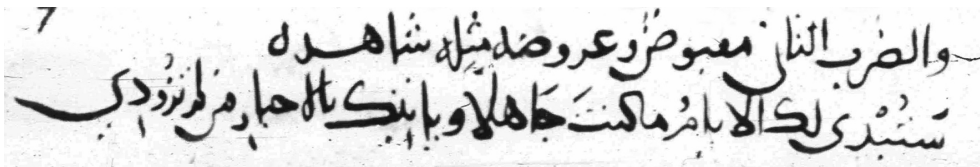 والضرب الثاني مقبوض وعروضه مثله شاهده
ستبدي لك الايام ما كنت جاهلا وياتيك بالاخبار من لم تزودي